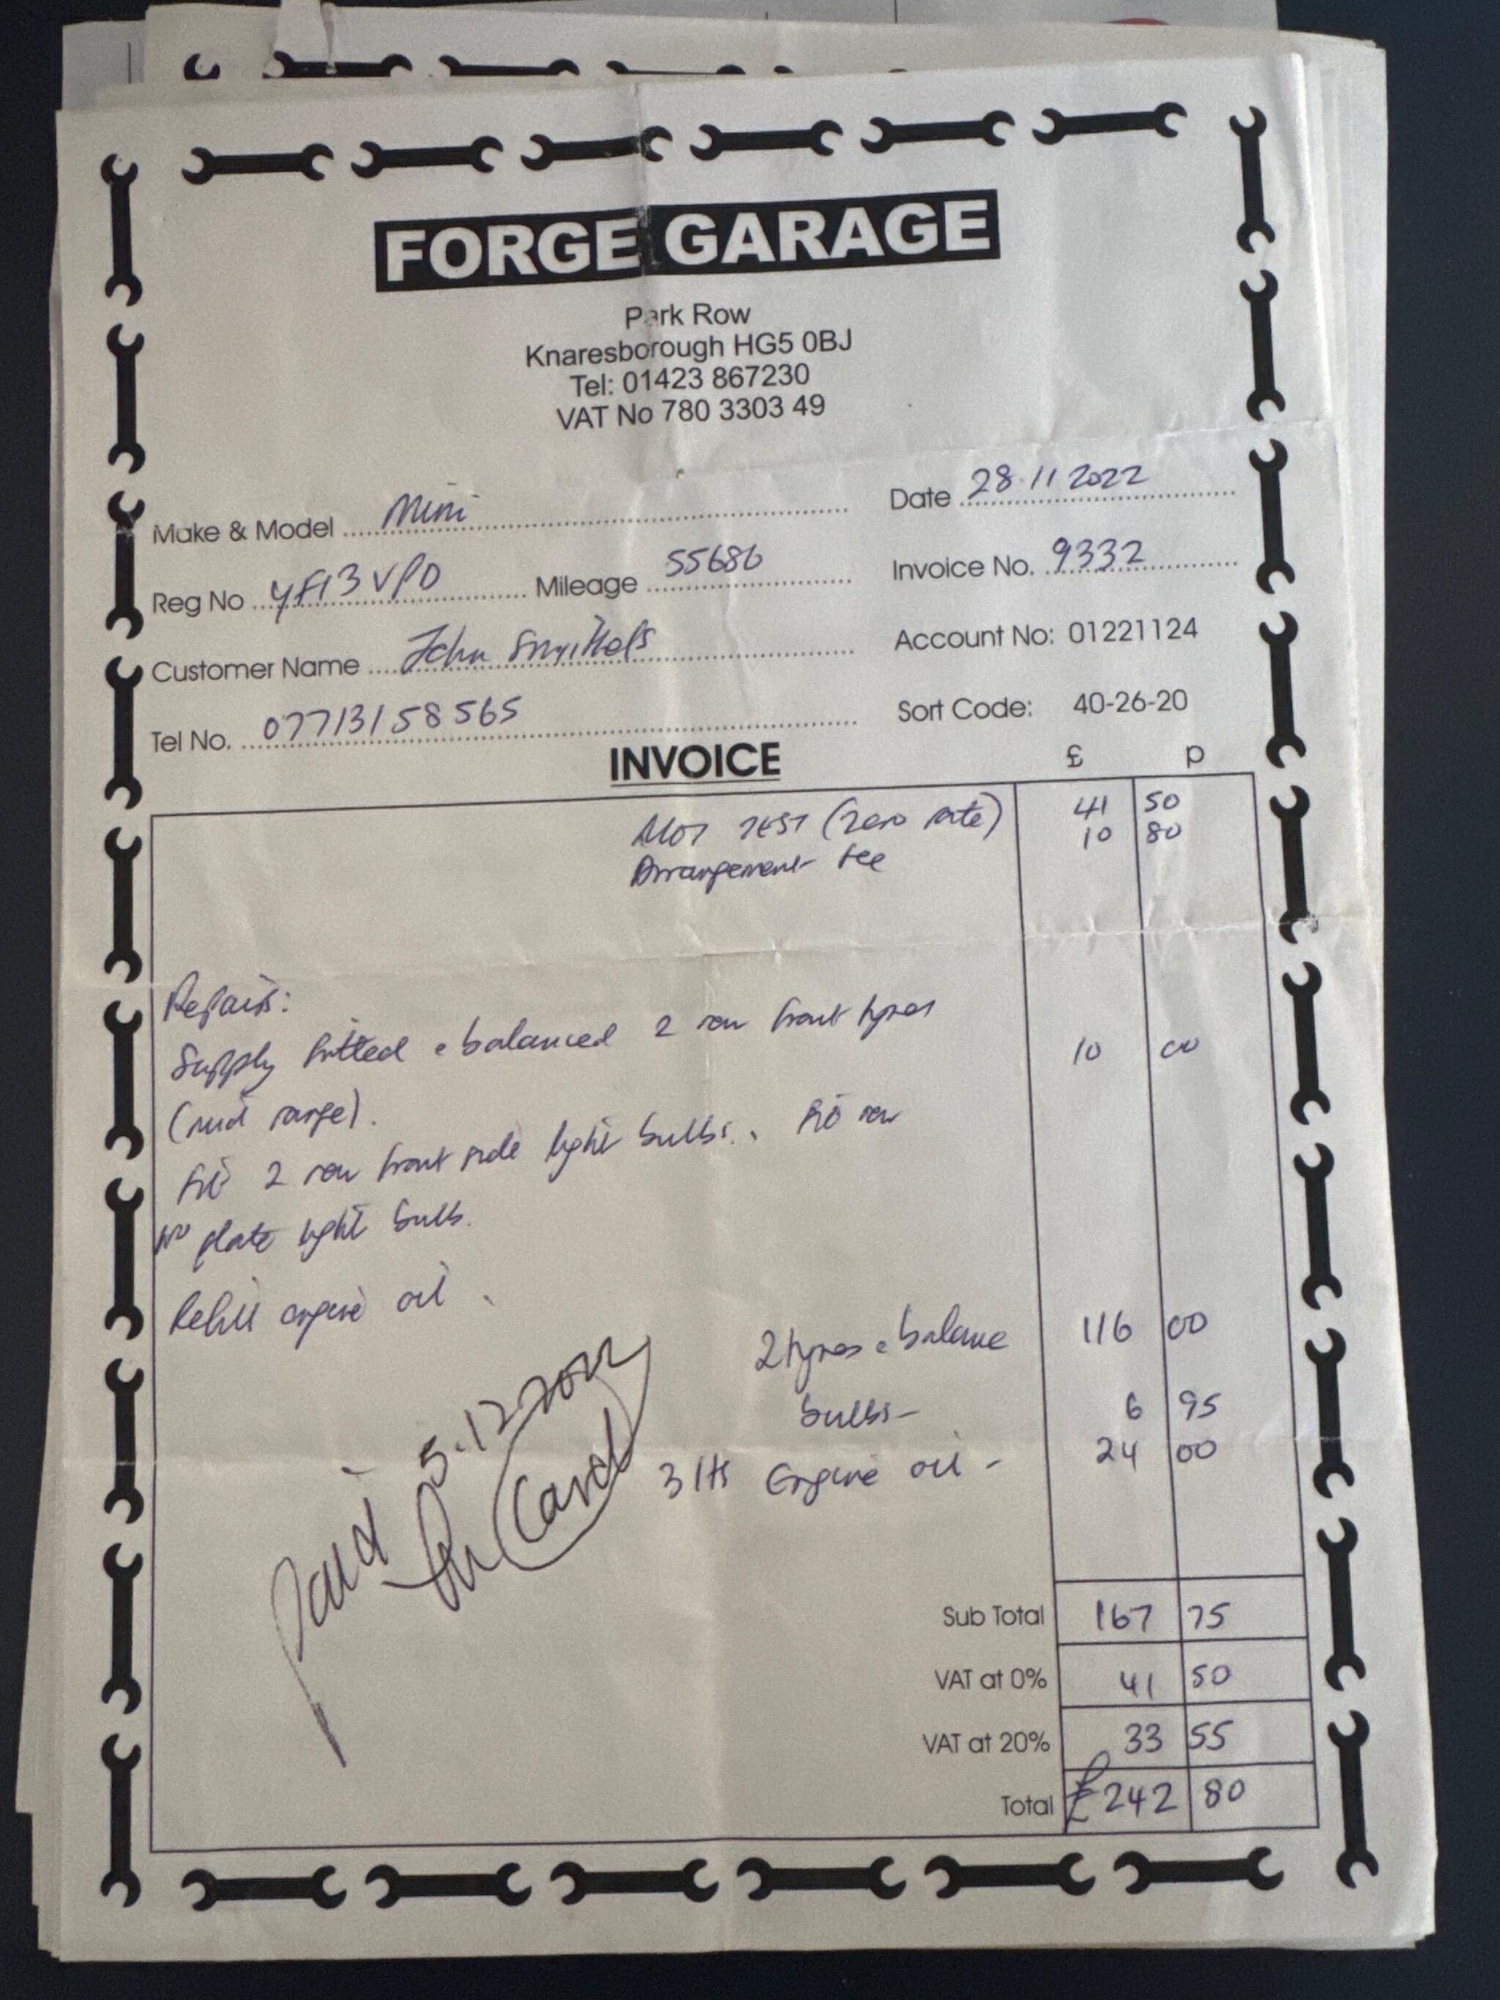 FORGE GARAGE
Park Row
Knaresborough HG5 0BJ
Tel: 01423 867230
VAT No 780 3303 49
Make & Model Mini
Date 28.11.2022
Reg No YF13 VPO Mileage 55686
Invoice No. 9332
Customer Name John
Account No: 01221124
Tel No. 07713158565
Sort Code: 40-26-20
INVOICE
£ p
MOT TEST (zero rate) 41 50
Arrangement fee 10 80
Repairs:
Supply fitted & balanced 2 new front tyres 10 00
(mid range).
Fit 2 new front side light bulbs. Fit new
No plate light bulb.
Refill engine oil.
2 tyres & balance 116 00
bulbs- 6 95
3 lts Engine oil - 24 00
Paid 5.12.2022
Card
Sub Total 167 75
VAT at 0% 41 50
VAT at 20% 33 55
Total £242 80